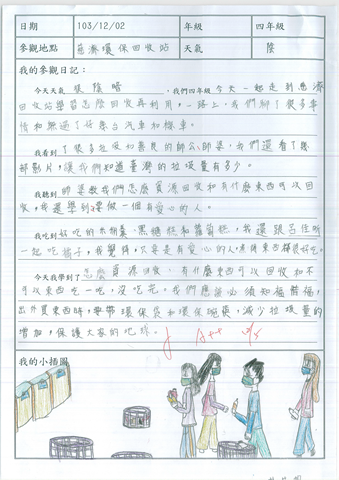 日期 103/12/02 年級 四年級
參觀地點 慈濟環保回收站 天氣 陰
我的參觀日記：
今天天氣 很陰暗 ，我們四年級今天一起走到慈濟
回收站學習怎麼回收再利用，一路上，我們聊了很多事
情和無過了好幾台汽車和機車。
我看到 了很多垃圾和善良的師公師桑，我們還看了幾
部影片，讓我們知道臺灣的垃圾量有多少。
我聽到 師桑教我們怎麼資源回收和有什麼東西可以回
收，我還學到要做一個有愛心的人。
我吃到 好吃的 糕和 ，我還跟呂佳
一起吃橘子，我覺得，只要是有愛心的人煮得東西都很好吃。
今天我學到了 怎麼資源回收，有什麼東西可以回收和不
可以東西吃一吃，沒吃完。我們應該必須知福惜福，
出外買東西時，要帶環保袋和環保碗筷，減少垃圾量的
增加，保護大家的地球。
A++
我的小插圖